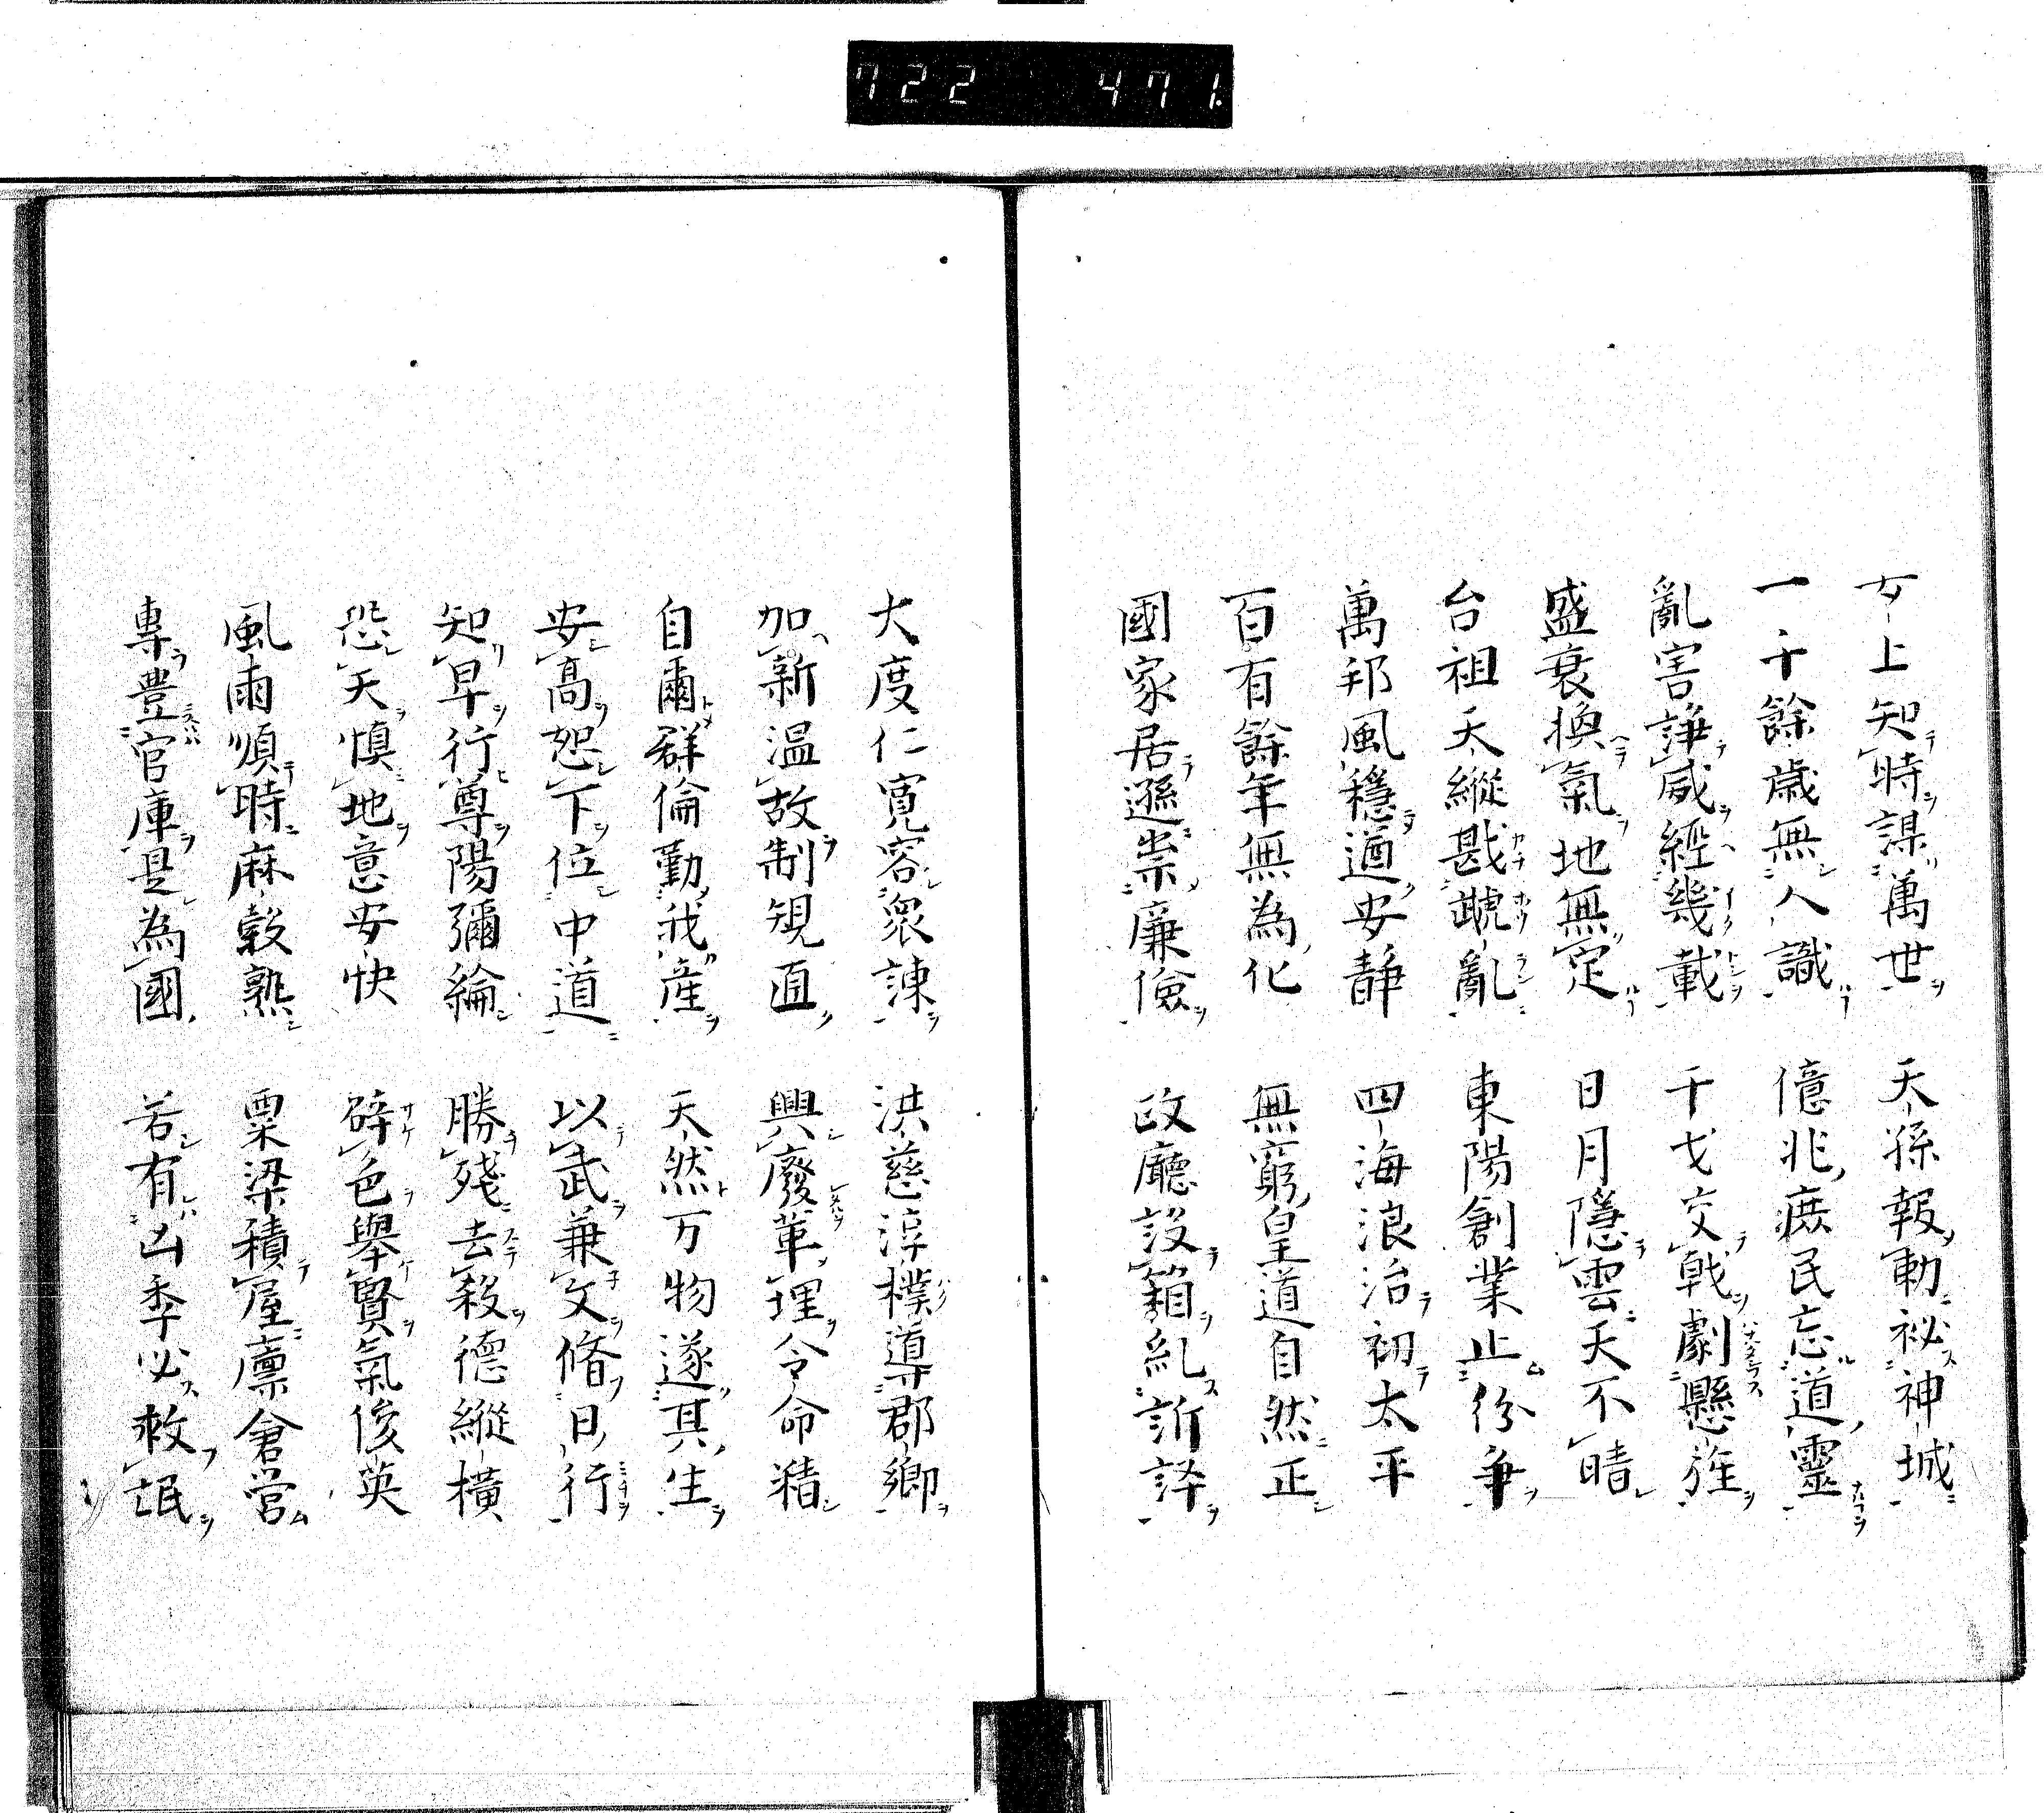 722 471.
女上知時謀萬世 天孫報勅祕神城
一千餘歲無人識 億兆庶民忘道靈
亂害諍威經幾載 干戈交戟劇懸旌
盛衰換氣地無定 日月隱雲天不晴
台祖天縱戡虣亂 東陽創業止紛爭
萬邦風穩道安靜 四海浪治初太平
百有餘年無為化 無窮皇道自然正
國家居遜崇廉儉 政廳設箱糺訴詳
大度仁寬容衆諌 洪慈淳樸導郡鄉
加新温故制規直 興廢革理令命精
自爾群倫勤我産 天然万物遂其生
安高恕下位中道 以武兼文脩日行
知卑行尊陽彌綸 勝殘去殺德縱橫
恐天愼地意安快 辟色舉賢氣俊英
風雨順時麻穀熟 粟梁積屋廩倉営
專豊官庫是為國 若有凶季必救氓